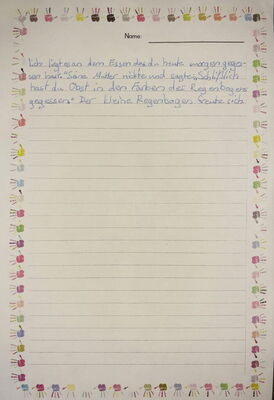 Name:
liegt es an dem Essen das du heute morgen geges-
sen hast." Seine Mutter nickte und sagte: „Schließlich
hast du Obst in den Farben des Regenbogens
gegessen." Der kleine Regenbogen freute sich